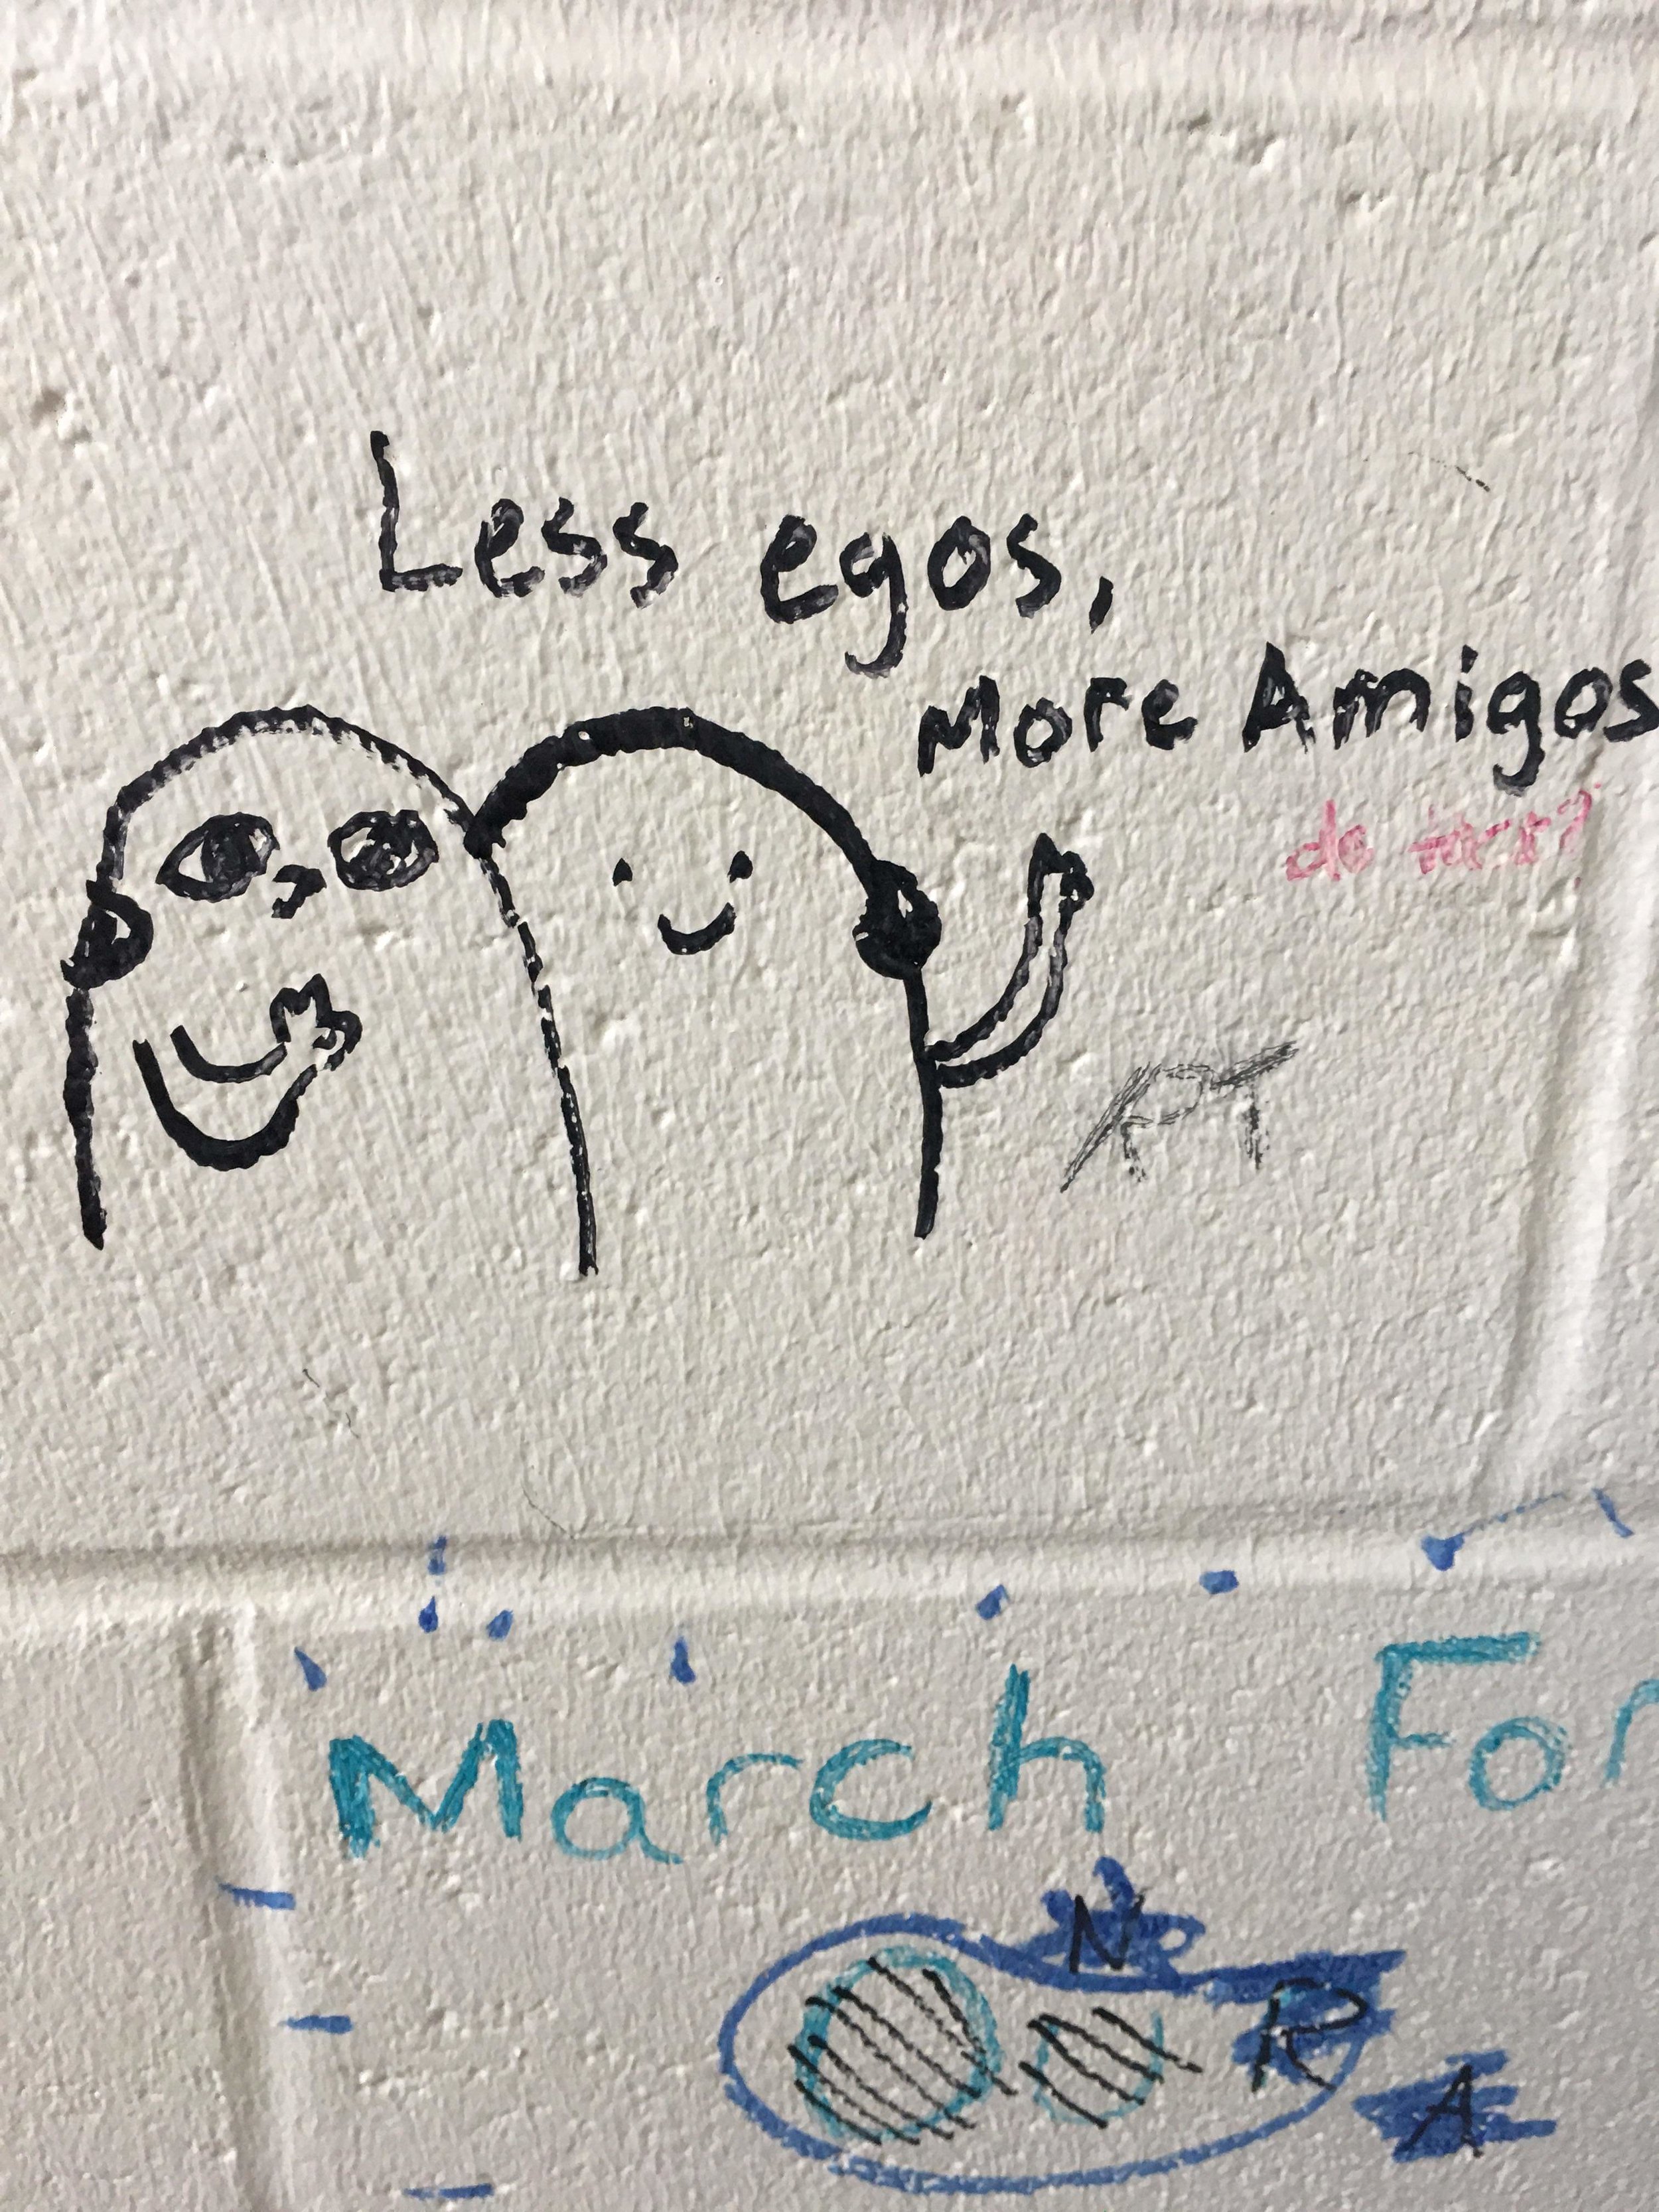 Less egos,
More Amigos
de
March For
N
R
A